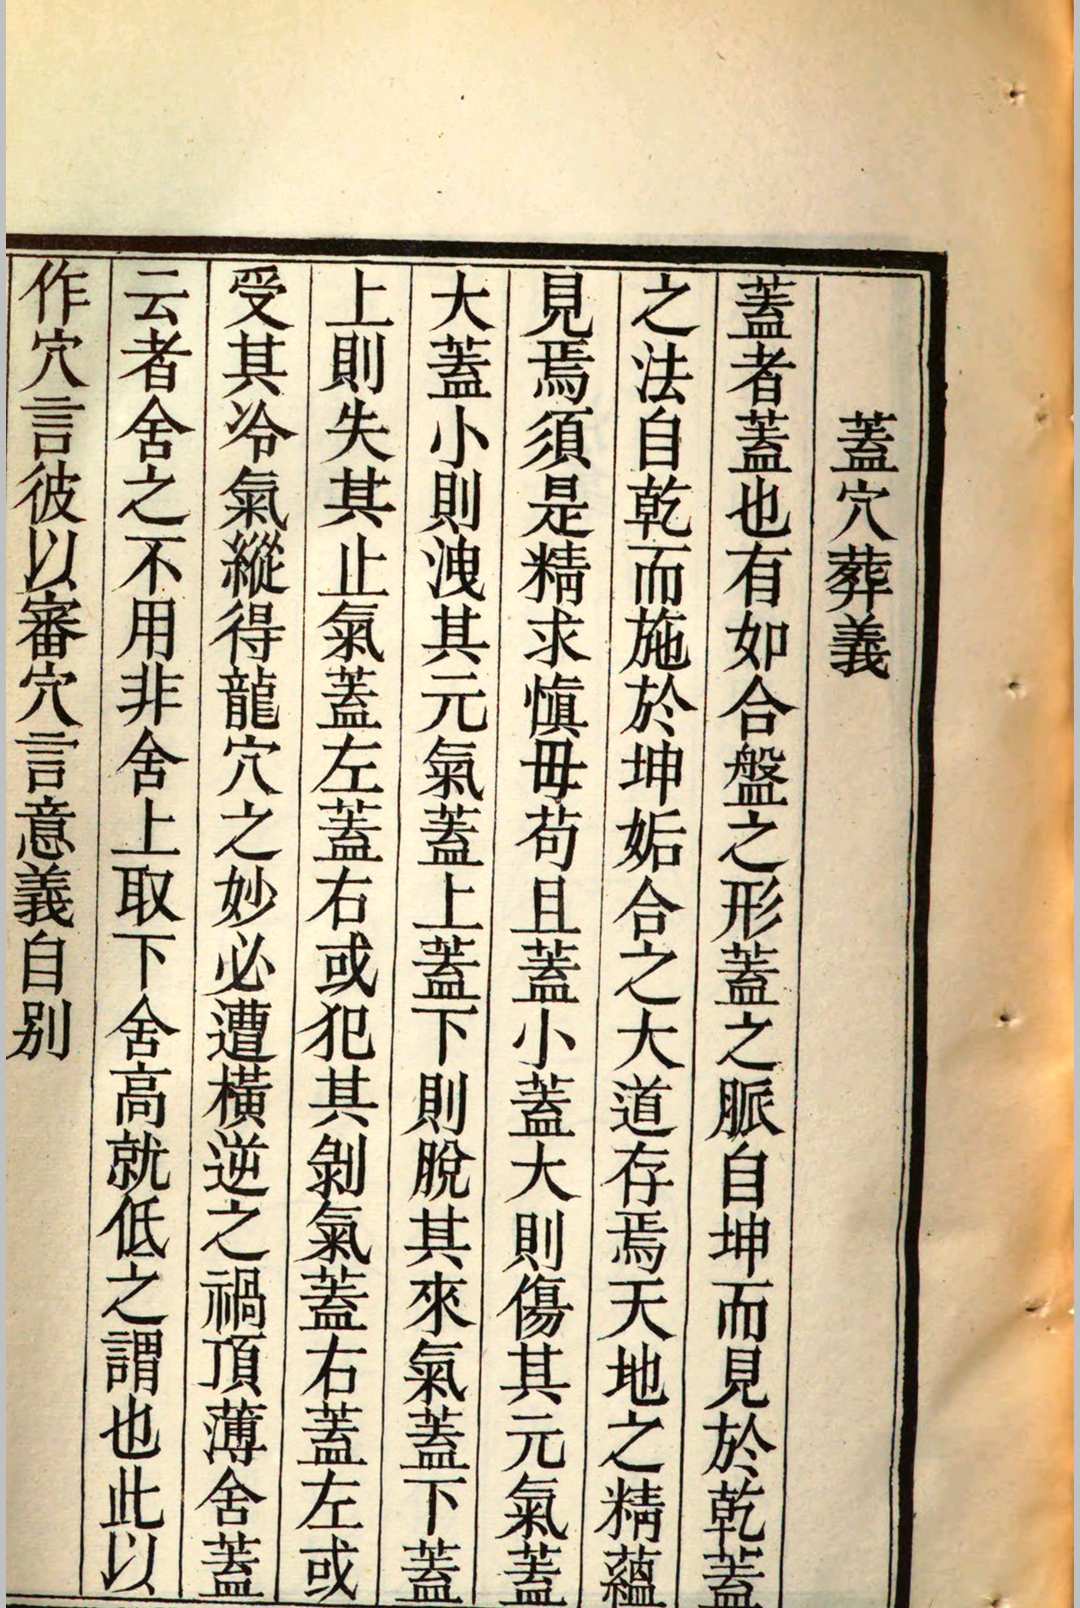 蓋穴葬義
蓋者蓋也有如合盤之形蓋之脈自坤而見於乾蓋
之法自乾而施於坤姤合之大道存焉天地之精蘊
見焉須是精求愼毋苟且蓋小蓋大則傷其元氣蓋
大蓋小則洩其元氣蓋上蓋下則脫其來氣蓋下蓋
上則失其止氣蓋左蓋右或犯其剝氣蓋右蓋左或
受其冷氣縱得龍穴之妙必遭橫逆之禍頂薄舍蓋
云者舍之不用非舍上取下舍高就低之謂也此以
作穴言彼以審穴言意義自別